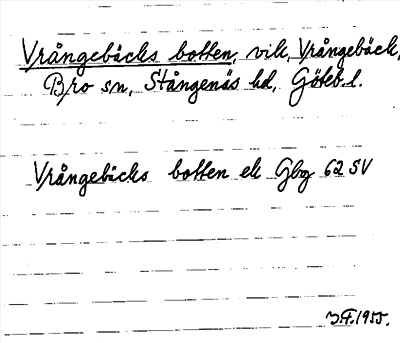 Vrångebäcks botten, vik, Vrångebäck,
Bro sn, Stångenäs hd, Göteb. l.
Vrångebäcks botten ek Gbg 62 SV
J.F. 1955.